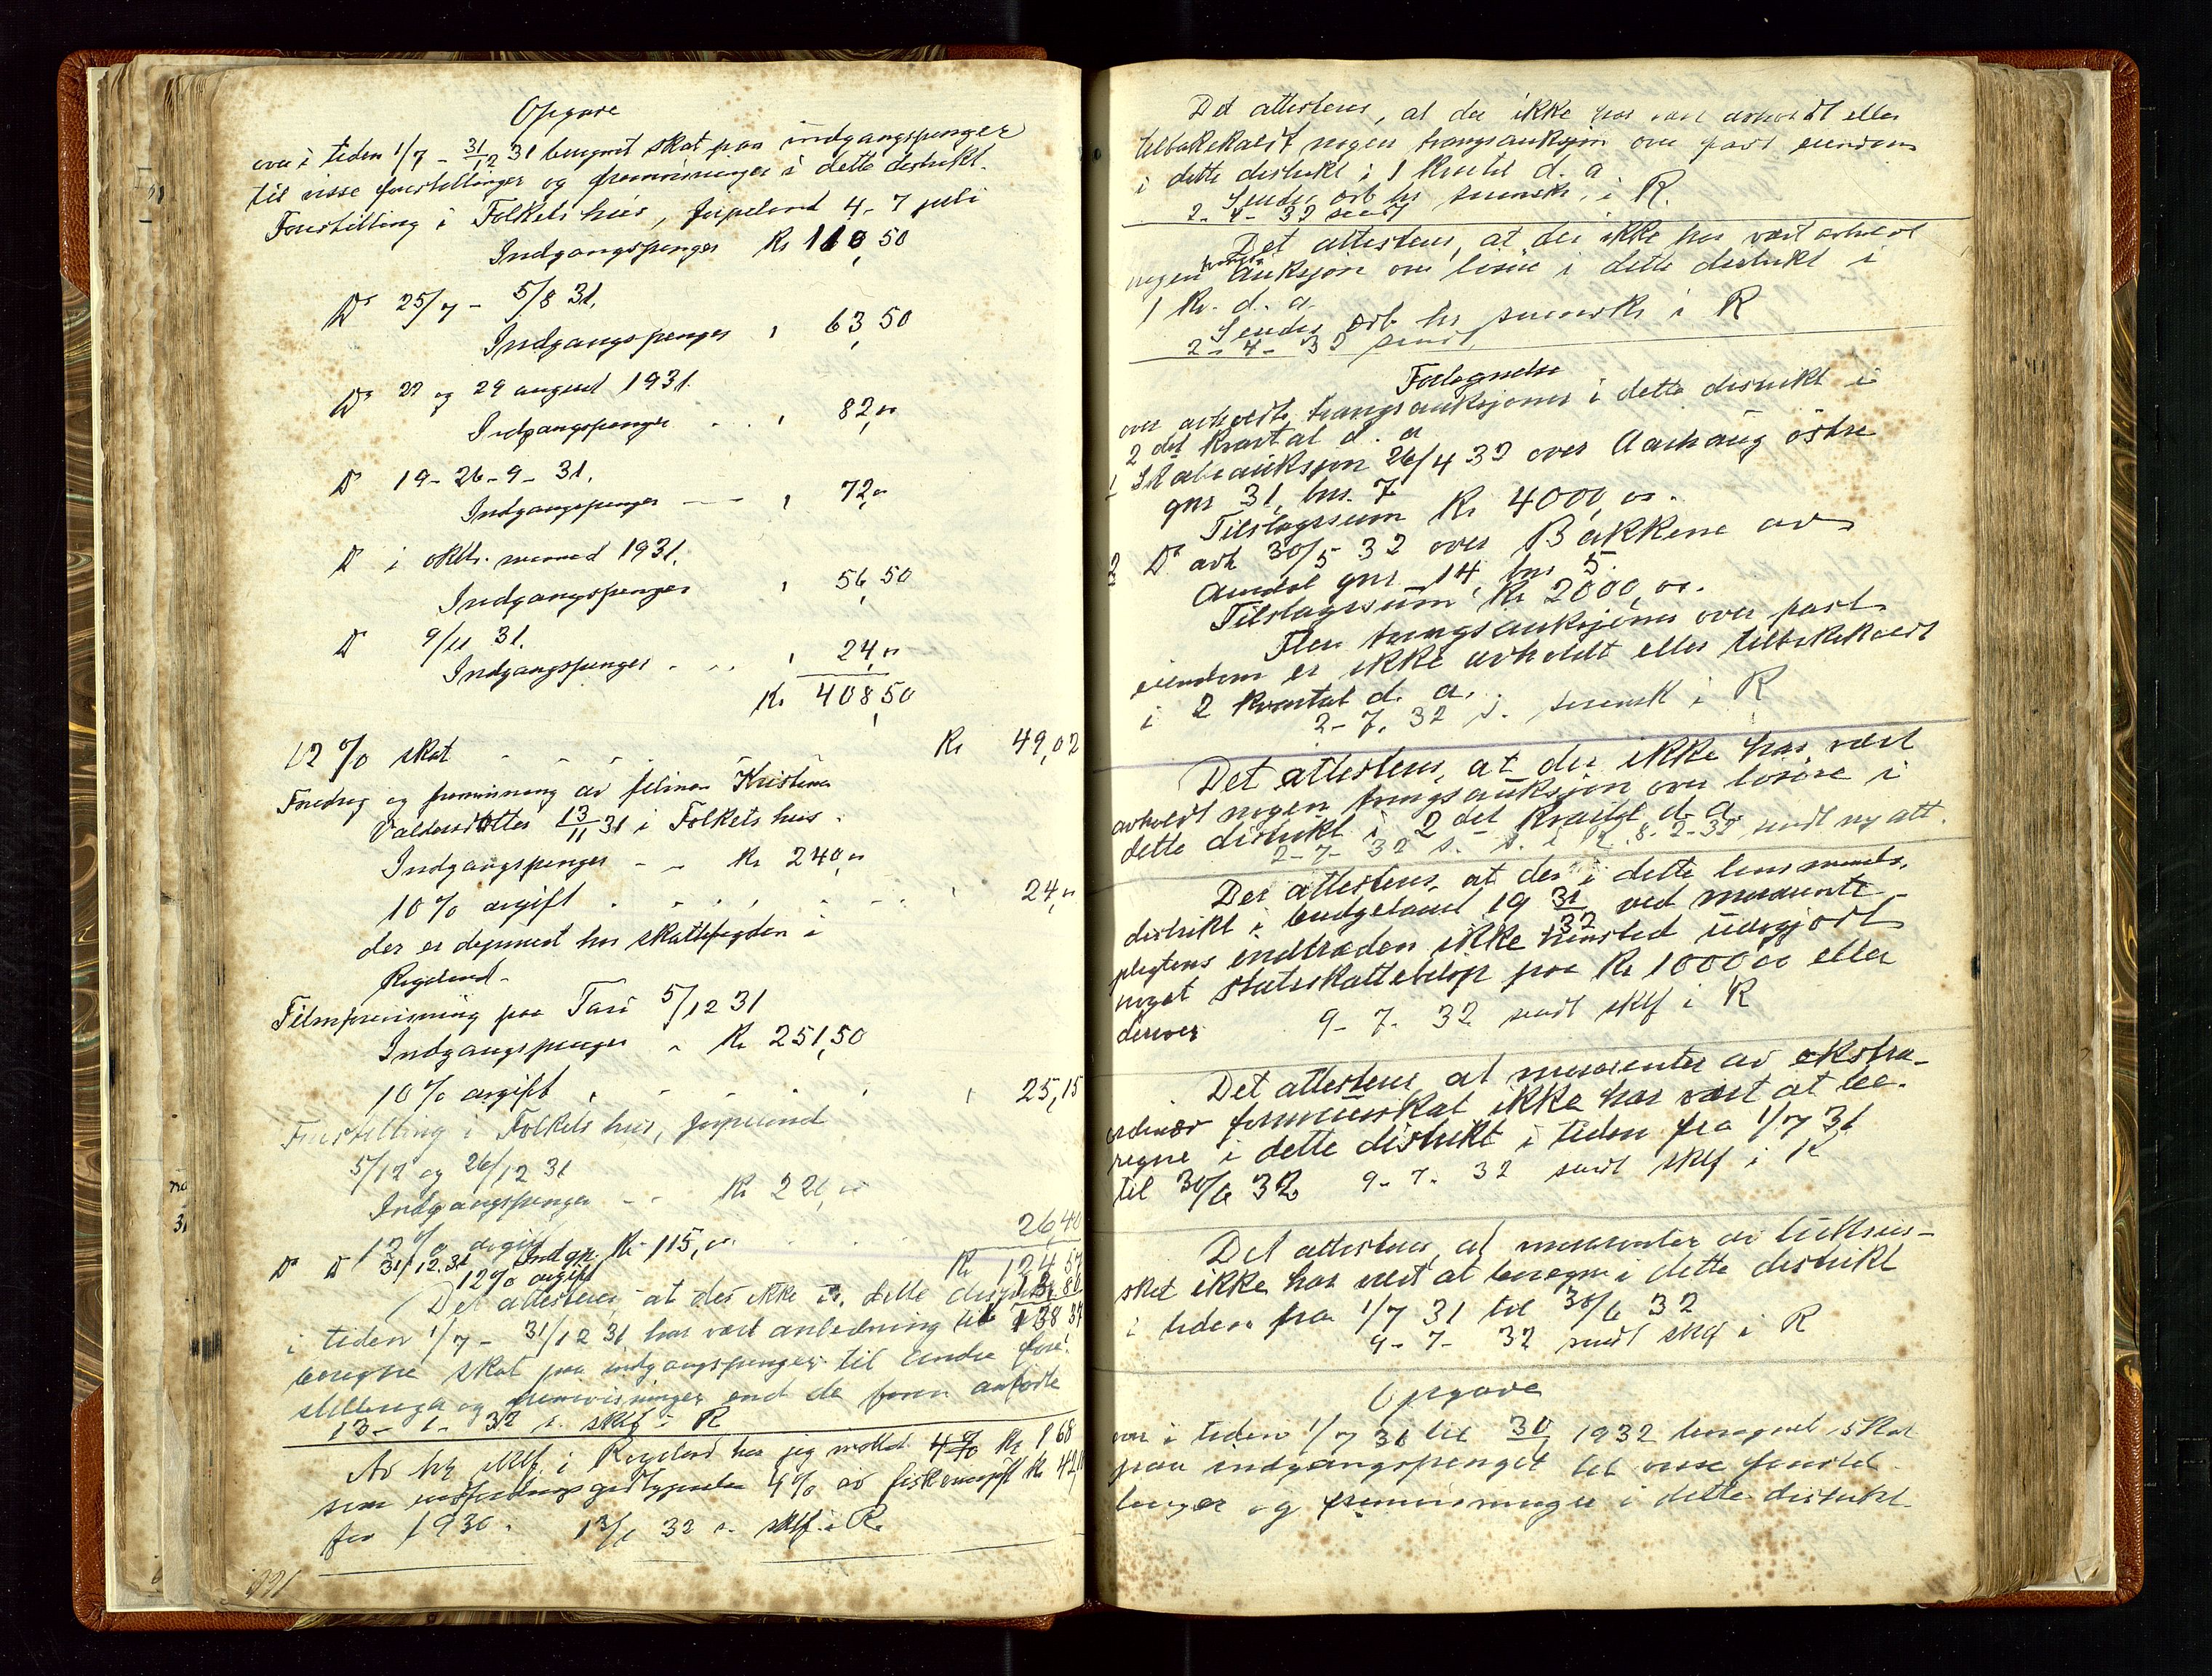 Opgave
over i tiden 1/7 - 31/12 31 beregnet skat paa indgangspenger
til visse forestillinger og fremvisninger i dette distrikt.
Forestilling i Folkets hus, Jørpeland 4-7 juli
Indgangspenger Kr 110,50
Do 25/7 - 5/8 31.
Indgangspenger " 63,50
Do 22 og 29 august 1931.
Indgangspenger " 82,00
Do 19-26-9-31.
Indgangspenger " 72,00
Do i oktb. maaned 1931.
Indgangspenger " 56,50
Do 9/11 31.
Indgangspenger " 24,00
Kr 408,50
12 % skat Kr 49,02
Foredrag og fremvisning av filmen Kristine
Valdersdatter 13/11 31 i Folkets hus.
Indgangspenger Kr 240,00
10 % avgift " 24,00
der er deponert hos skattefogden i
Rogaland.
Filmfremvisning paa Tau 5/12 31
Indgangspenger Kr 251,50
10 % avgift " 25,15
Forestilling i Folkets hus, Jørpeland
5/12 og 26/12 31
Indgangspenger Kr 220,00
12 % avgift 26,40
Do Do 31/12 31 Indgp. Kr 115,00 Kr 124 57
12% avgift 13 80
Det attesteres at der ikke i dette distrikt 138 37
i tiden 1/7 - 31/12 31 har vært anledning til at
beregne skat paa indgangspenger til andre fore-
stillinger og fremvisninger end de foran anførte
13-1-32 s. sklf i R
Av hr sklf i Rogaland har jeg mottat 4% Kr 1 68
som godtgjørelse 4% av fiskeravgift Kr 42,
for 1930. 13/1 32 s. sklf i R.
Det attesteres, at der ikke har vært avholdt eller
tilbakekaldt nogen tvangsauksjon over fast eiendom
i dette distrikt i 1 kvartal d. a
Sendes srb hr sorensk. i R.
2-4-32 sendt
Det attesteres, at der ikke har vært avholdt
nogen tvangs auksjon over løsøre i dette distrikt i
1 kv. d. a.
Sendes srb hr sorensk i R
2-4-32 sendt
Fortegnelse
over avholdte tvangsauksjoner i dette distrikt i
2 det kvartal d. a
1 auksjon 26/4 32 over Aarhaug østre
gnr 31, bnr. 7
Tilslagssum Kr 4000,00.
2 Do avh 30/5 32 over Bakkene av
Amdal gnr 14, bnr 5.
Tilslagssum Kr 2000,00.
Flere tvangsauksjoner over fast
eiendom er ikke avholdt eller tilbakekaldt
i 2 kvartal d. a.
2-7. 32 s. sorensk i R
Det attesteres, at der ikke har vært
avholdt nogen tvangsauksjon over løsøre i
dette distrikt i 2 det kvartal d. a.
2-7-32 s. s. i R. 8-7-32 sendt ny att.
Det attesteres, at der i dette lensmands-
distrikt i budgetaaret 1931/32 ved
pligtens indtræden ikke utlignet
noget statsskattebeløp paa Kr 1000,00 eller
derover 9-7-32 sendt sklf i R
Det attesteres, at av ekstra-
ordinær formueskat ikke har vært at be-
regne i dette distrikt i tiden fra 1/7 31
til 30/6 32 9-7-32 sendt sklf i R
Det attesteres, at av luksus-
skat ikke har vært at beregne i dette distrikt
i tiden fra 1/7 31 til 30/6 32
9-7-32 sendt sklf i R
Opgave
over i tiden 1/7 31 til 30/6 1932 beregnet skat
paa indgangspenger til visse forestil-
linger og fremvisninger i dette distrikt